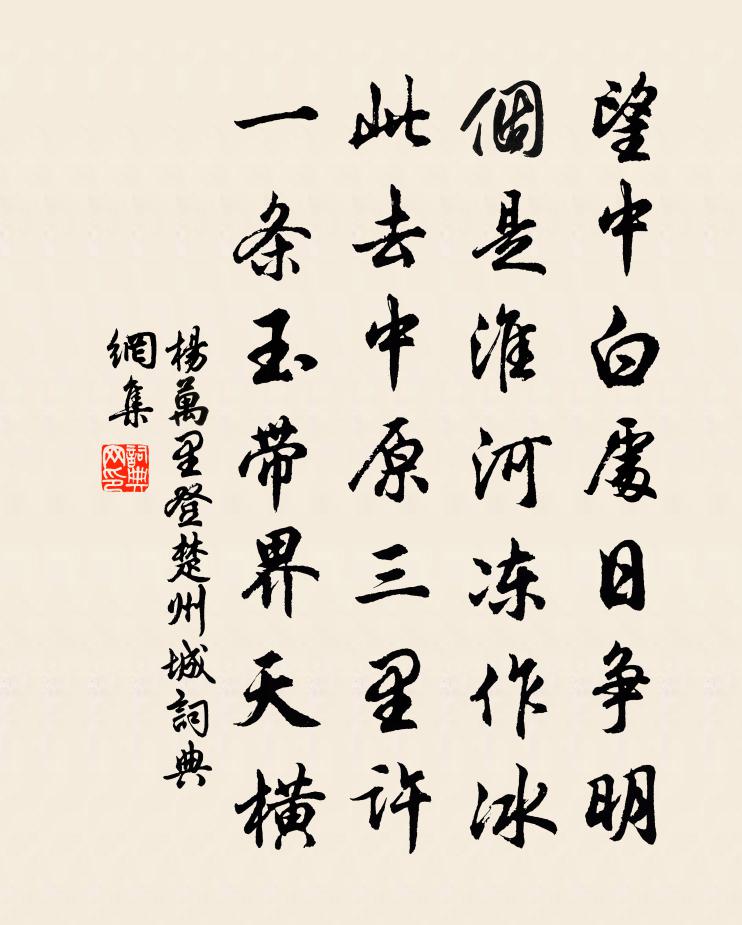 望中白處日争明
個是淮河冻作冰
此去中原三里許
一条玉带界天横
楊萬里登楚州城詞典
網集
詞典
网印